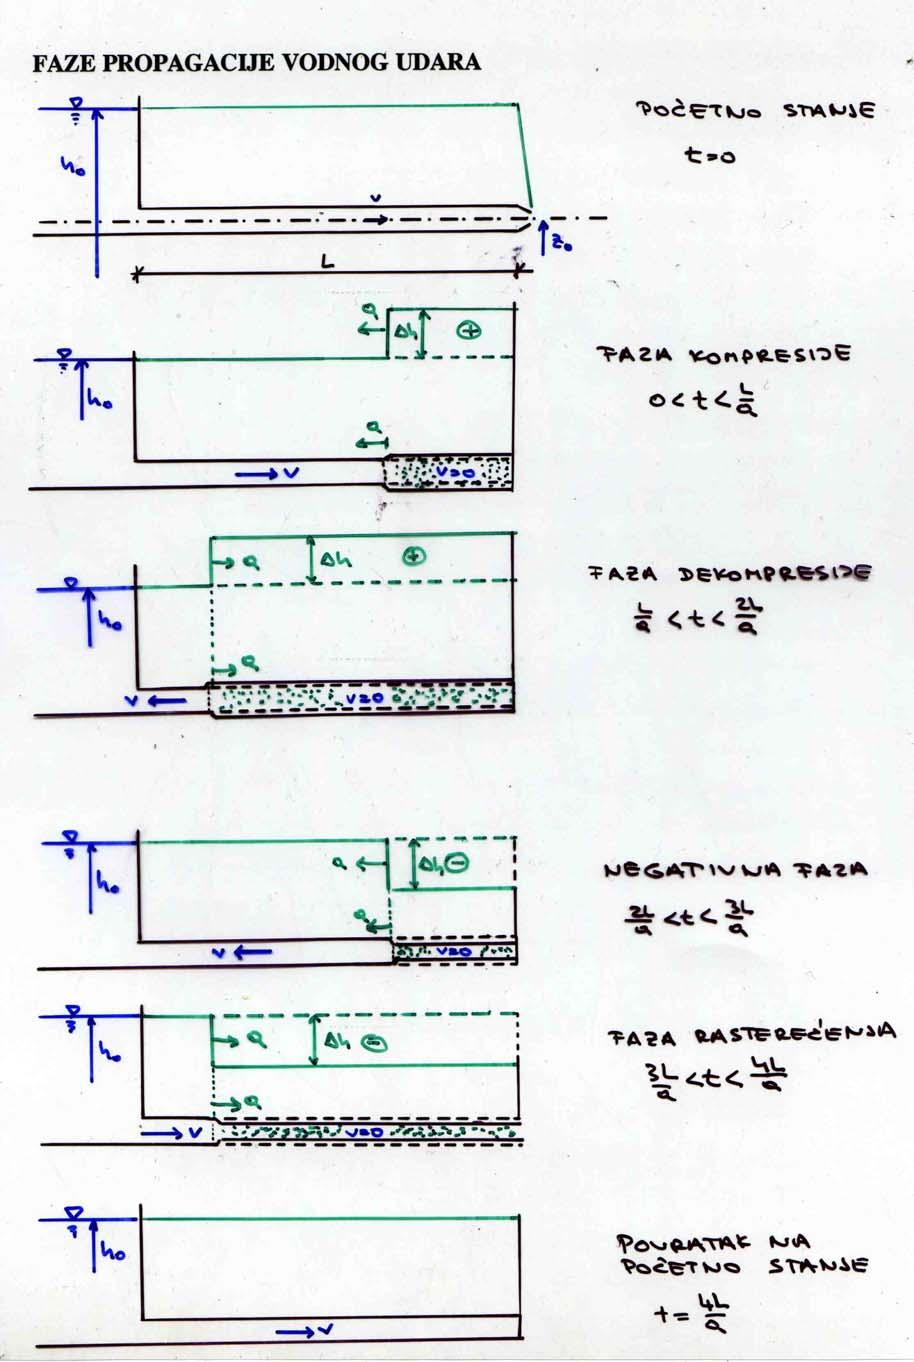 FAZE PROPAGACIJE VODNOG UDARA
POČETNO STANJE
t=0
h₀
v
z₀
L
a
Δh
+
FAZA KOMPRESIJE
0 < t < L/a
h₀
a
v
v=0
a
Δh
+
FAZA DEKOMPRESIJE
L/a < t < 2L/a
h₀
a
v
v=0
NEGATIVNA FAZA
2L/a < t < 3L/a
h₀
a
Δh
-
a
v
v=0
FAZA RASTEREĆENJA
3L/a < t < 4L/a
h₀
a
Δh
-
a
v
v=0
POVRATAK NA
POČETNO STANJE
t = 4L/a
h₀
v